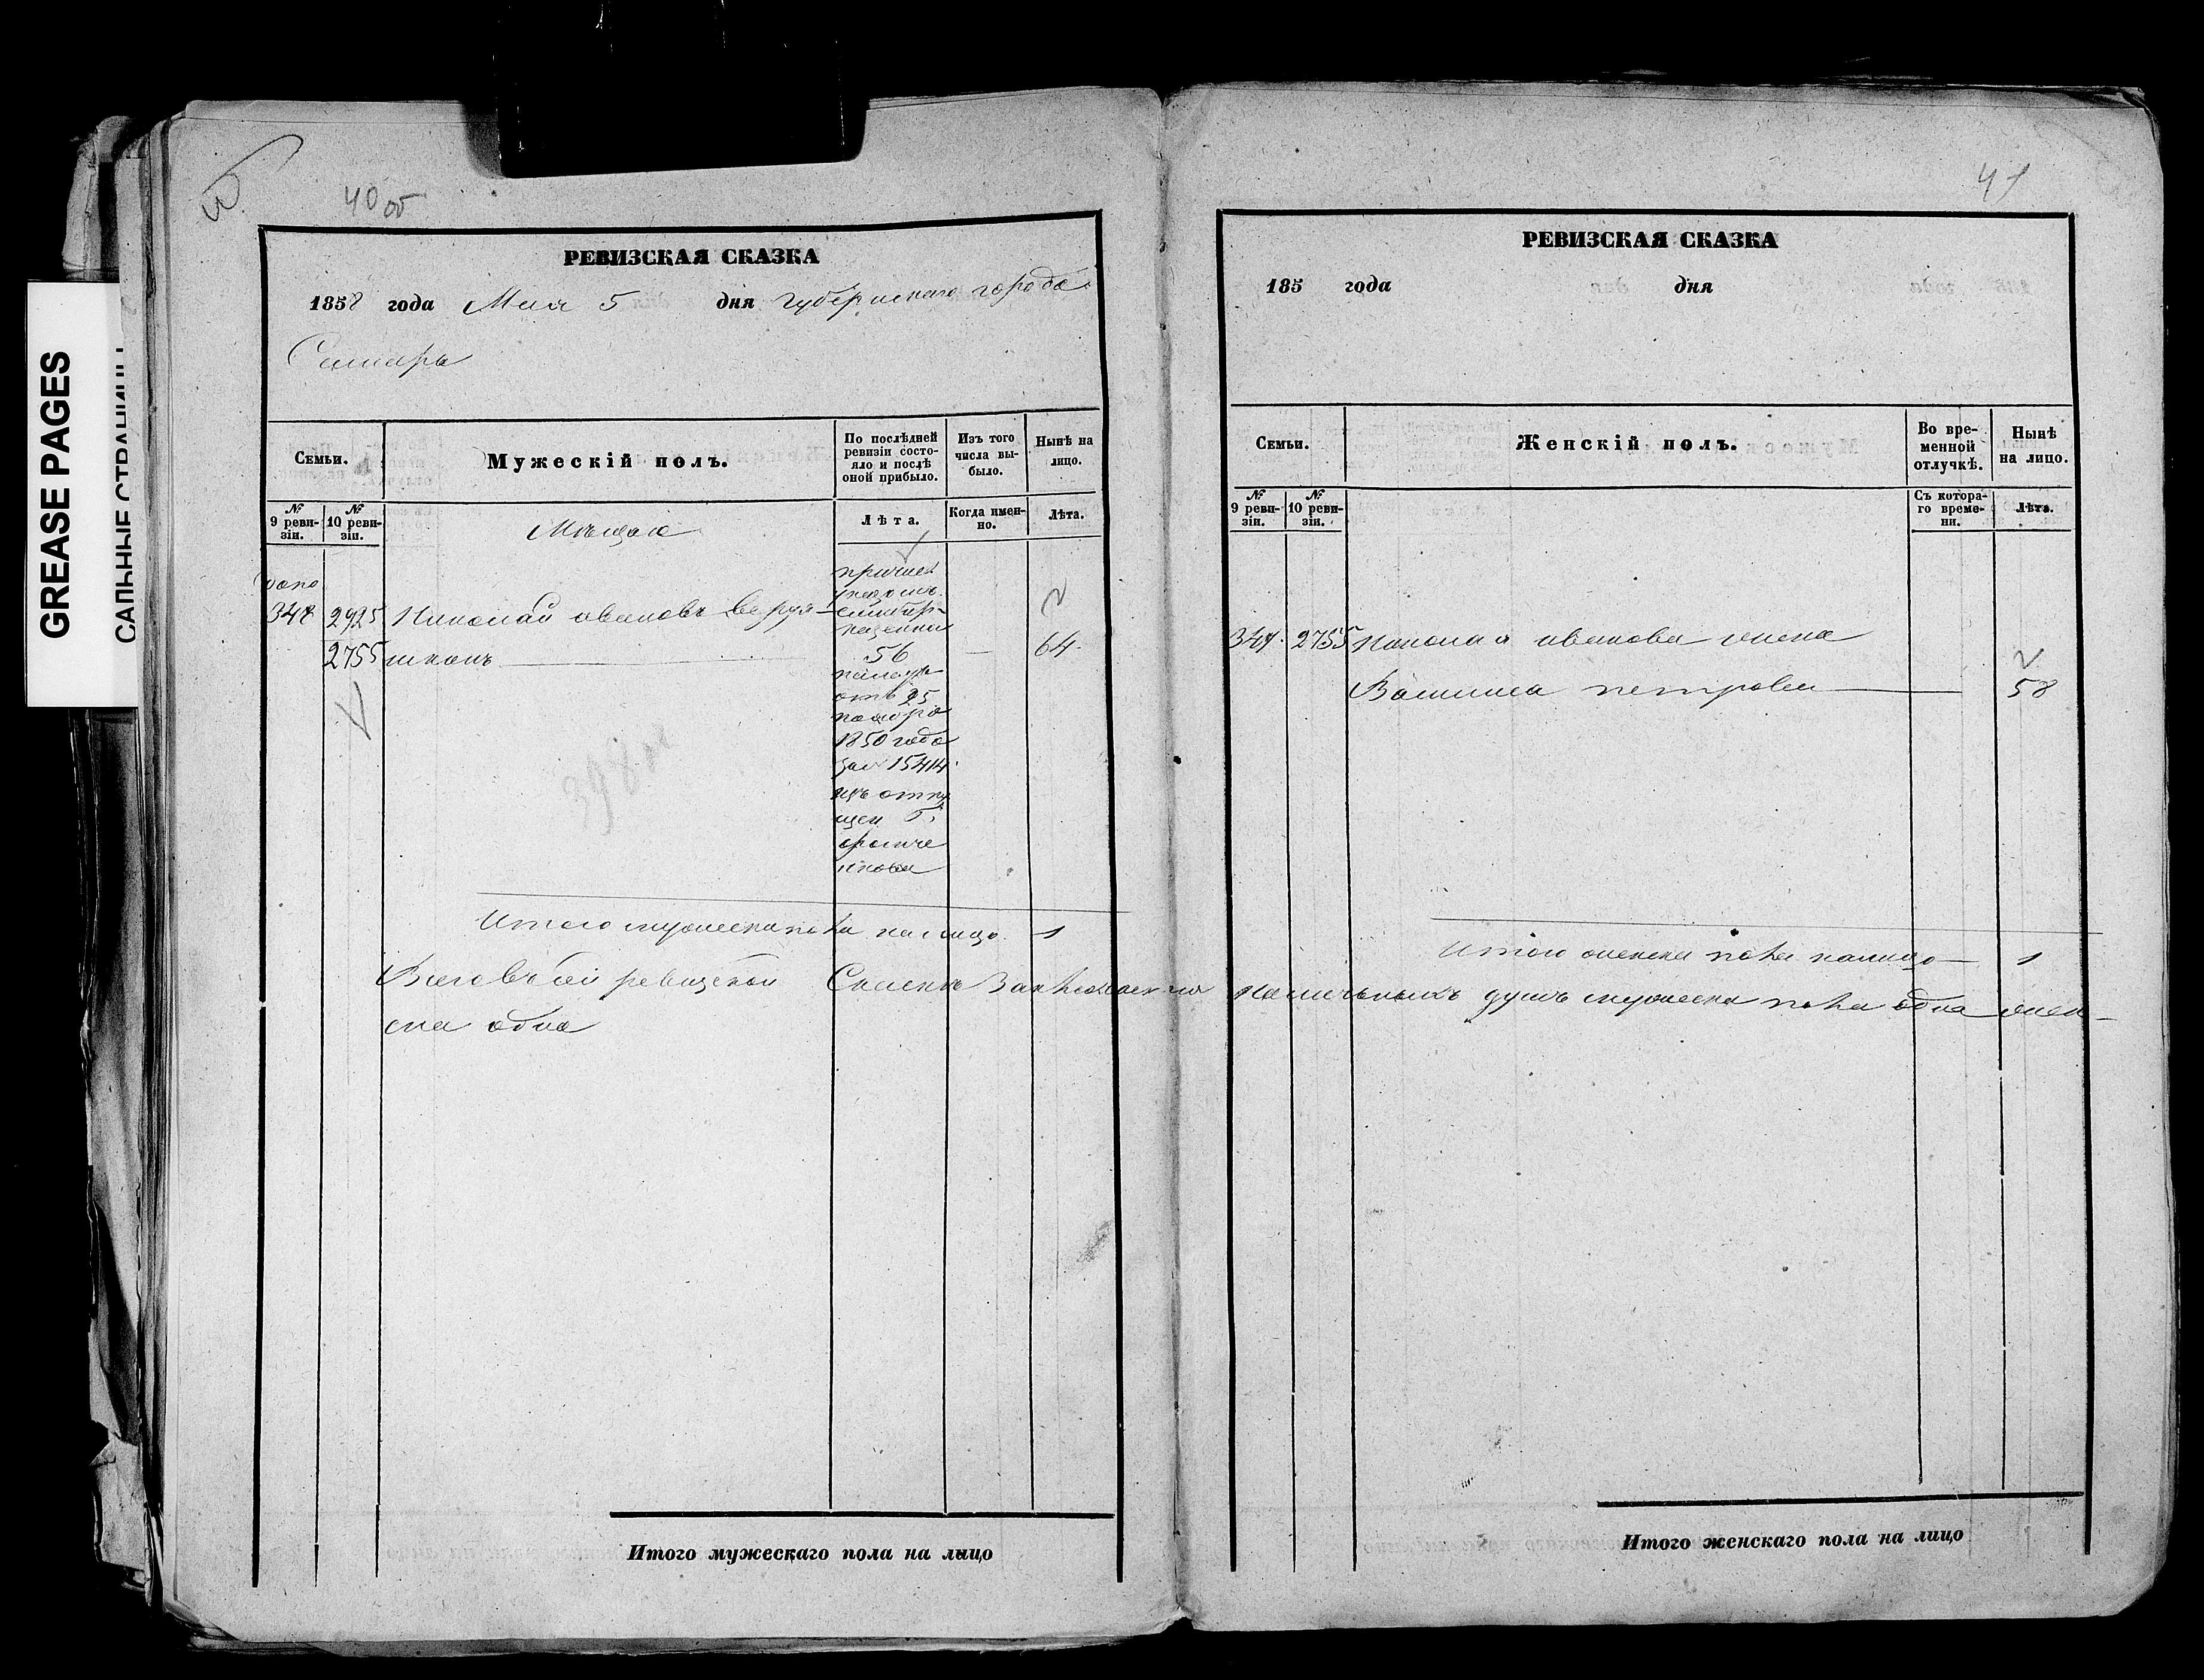 GREASE PAGES
САЛЬНЫЕ СТРАНИЦЫ
40 об
РЕВИЗСКАЯ СКАЗКА
1858 года Мая 5 дня губернскаго города
Самары
Семьи.
Мужескій полъ.
По послѣдней ревизіи состояло и послѣ оной прибыло.
Изъ того числа выбыло.
Нынѣ на лицо.
№ 9 ревизіи.
№ 10 ревизіи.
Мѣщане
Лѣта.
Когда именно.
Лѣта.
348 2925 Николай ивановъ
2755
56
64
отъ 25
1850 года
15414
Итого мужеска пола на лицо 1
РЕВИЗСКАЯ СКАЗКА
41
185 года дня
Семьи.
Женскій полъ.
Во временной отлучкѣ.
Нынѣ на лицо.
№ 9 ревизіи.
№ 10 ревизіи.
Съ котораго времени.
Лѣта.
2755 Николая иванова жена
петрова 58
Итого женска пола на лицо 1
Всего въ сей ревизской Сказкѣ Заключается наличныхъ душъ мужеска пола одна жен-
ска одна
Итого мужескаго пола на лицо
Итого женскаго пола на лицо